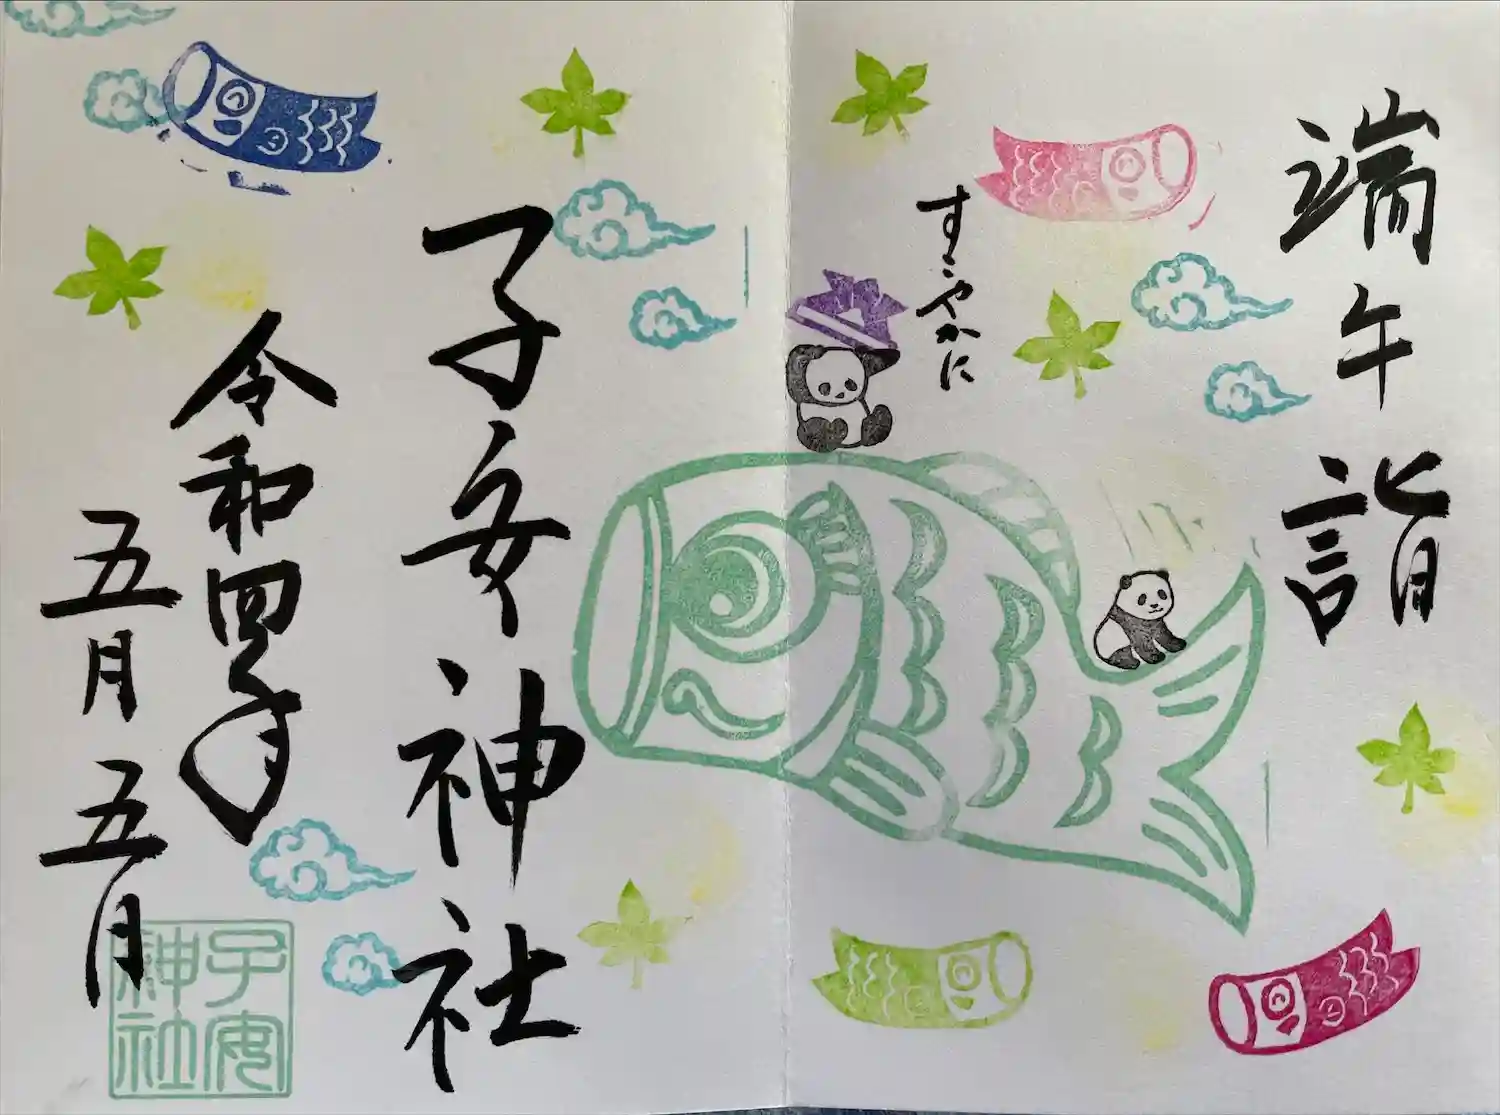 端午詣
すこやかに
子安神社
令和四年
五月五日
子安
神社